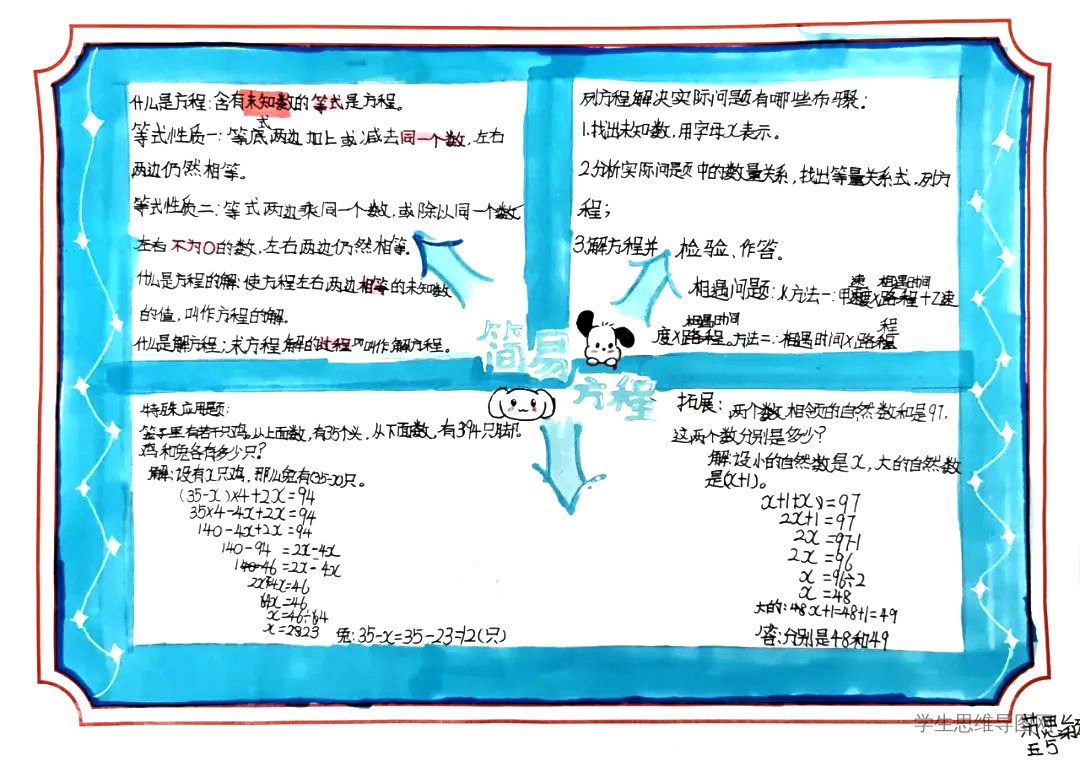 什么是方程:含有未知数的等式是方程。
式
等式性质一:等底两边加上或减去同一个数,左右
两边仍然相等。
等式性质二:等式两边乘同一个数,或除以同一个数
左右不为0的数,左右两边仍然相等。
什么是方程的解:使方程左右两边相等的未知数
的值,叫作方程的解。
什么是解方程:求方程解的过程叫作解方程。
列方程解决实际问题有哪些布骤:
1.找出未知数,用字母x表示。
2.分析实际问题中的数量关系,找出等量关系式,列方
程;
3.解方程并检验、作答。
速 相遇时间
相遇问题:方法一:甲速度×路程+乙速
相遇时间 程
度×路程。方法二:相遇时间×路程
简易
方程
特殊应用题:
笼子里有若干只鸡。从上面数,有35个头,从下面数,有394只脚。
鸡和兔各有多少只?
解:设有x只鸡,那么兔有(35-x)只。
(35-x)×4+2x=94
35×4-4x+2x=94
140-4x+2x=94
140-94=2x-4x
46=2x-4x
x=23
兔:35-x=35-23=12(只)
拓展:两个数相邻的自然数和是97.
这两个数分别是多少?
解:设小的自然数是x,大的自然数
是(x+1)。
x+1+x=97
2x+1=97
2x=97-1
2x=96
x=96÷2
x=48
大的:48x+1=48+1=49
答:分别是48和49
学生思维导图
五5